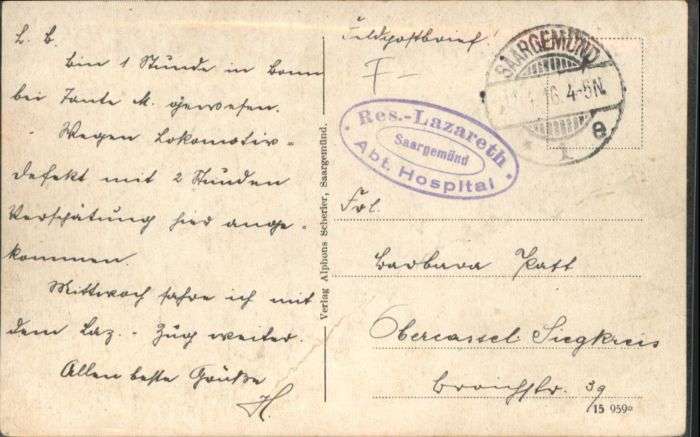 L. B.
bin 1 Stunde in Bonn
bei Tante M. gewesen.
Wegen Lokomotiv-
defekt mit 2 Stunden
Verspätung hier ange-
kommen.
Mittwoch fahre ich mit
dem Laz.-Zug weiter.
Allen beste Grüße
H
Verlag Alphons Scherier, Saargemünd.
Feldpostbrief
SAARGEMÜND
16. 4-5N.
1 e
Res.-Lazareth
Saargemünd
Abt. Hospital
Frl.
Barbara Katt
Obercassel Siegkreis
Broichstr. 39
15 959